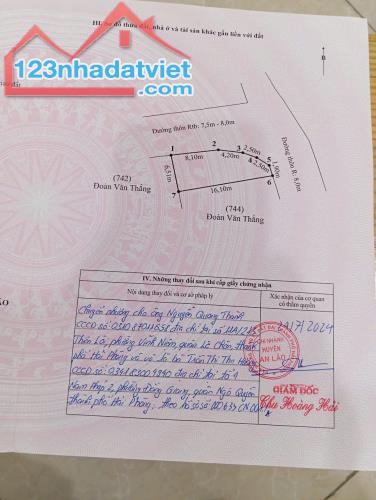 III. Sơ đồ thửa đất, nhà ở và tài sản khác gắn liền với đất
123nhadatviet.com
B
Đường thôn Rtb: 7,5m - 8,0m
Đường thôn R: 8,0m
1
2
3
4
5
6
7
8,10m
4,20m
2,50m
2,50m
1,90m
6,51m
16,10m
(742)
Đoàn Văn Thắng
(744)
Đoàn Văn Thắng
IV. Những thay đổi sau khi cấp giấy chứng nhận
Nội dung thay đổi và cơ sở pháp lý
Xác nhận của cơ quan
có thẩm quyền
Chuyển nhượng cho ông Nguyễn Quang Thành
CCCD số: địa chỉ tại số
phường Vĩnh Niệm, quận Lê Chân, thành
phố Hải Phòng và vợ là bà Trần Thị Thu
CCCD số: địa chỉ tại tổ 4
phường Đông Giang, quận Ngô Quyền
thành phố Hải Phòng, theo hồ sơ số
CHI NHÁNH
HUYỆN
AN LÃO
GIÁM ĐỐC
Chu Hoàng Hải